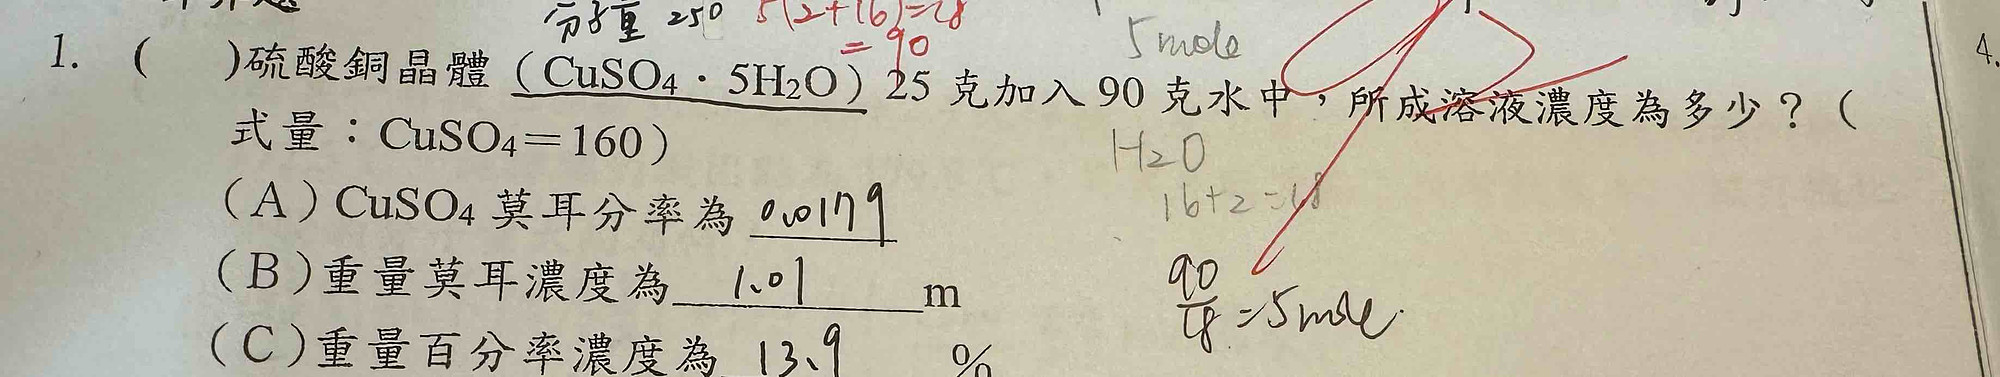 分子量 250 5(2+16)=18
= 90
5 mole
1. ( )硫酸銅晶體(CuSO4・5H2O)25 克加入 90 克水中，所成溶液濃度為多少？（
式量：CuSO4＝160）
H2O
16+2=18
(A) CuSO4 莫耳分率為 0.0179
(B)重量莫耳濃度為 1.01 m
90/18 = 5 mole.
(C)重量百分率濃度為 13.9 %
4.